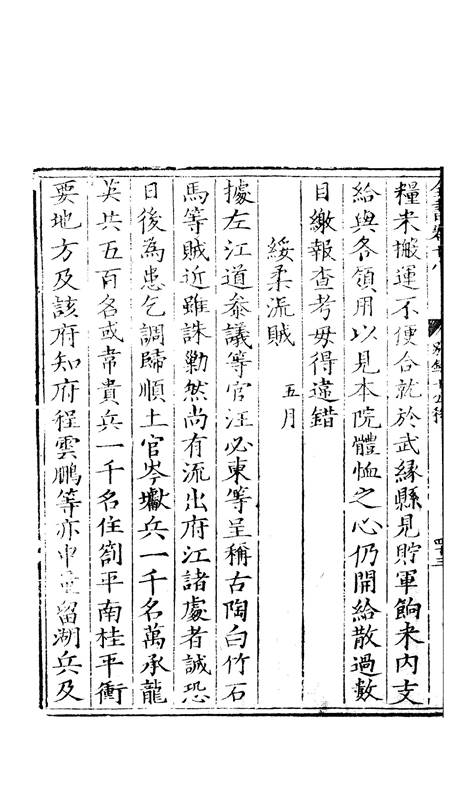 糧米搬運不便合就於武縁縣見貯軍餉米内支
給與各領用以見本院體恤之心仍開給散過數
目繳報查考毋得違錯
綏柔流賊 五月
據左江道參議等官汪必東等呈稱古陶白竹石
馬等賊近雖誅勦然尚有流出府江諸處者誠恐
日後為患乞調歸順土官岑瓛兵一千名萬承龍
英共五百名或韋貴兵一千名住劄平南桂平衝
要地方及該府知府程雲鵬等亦申量留湖兵及